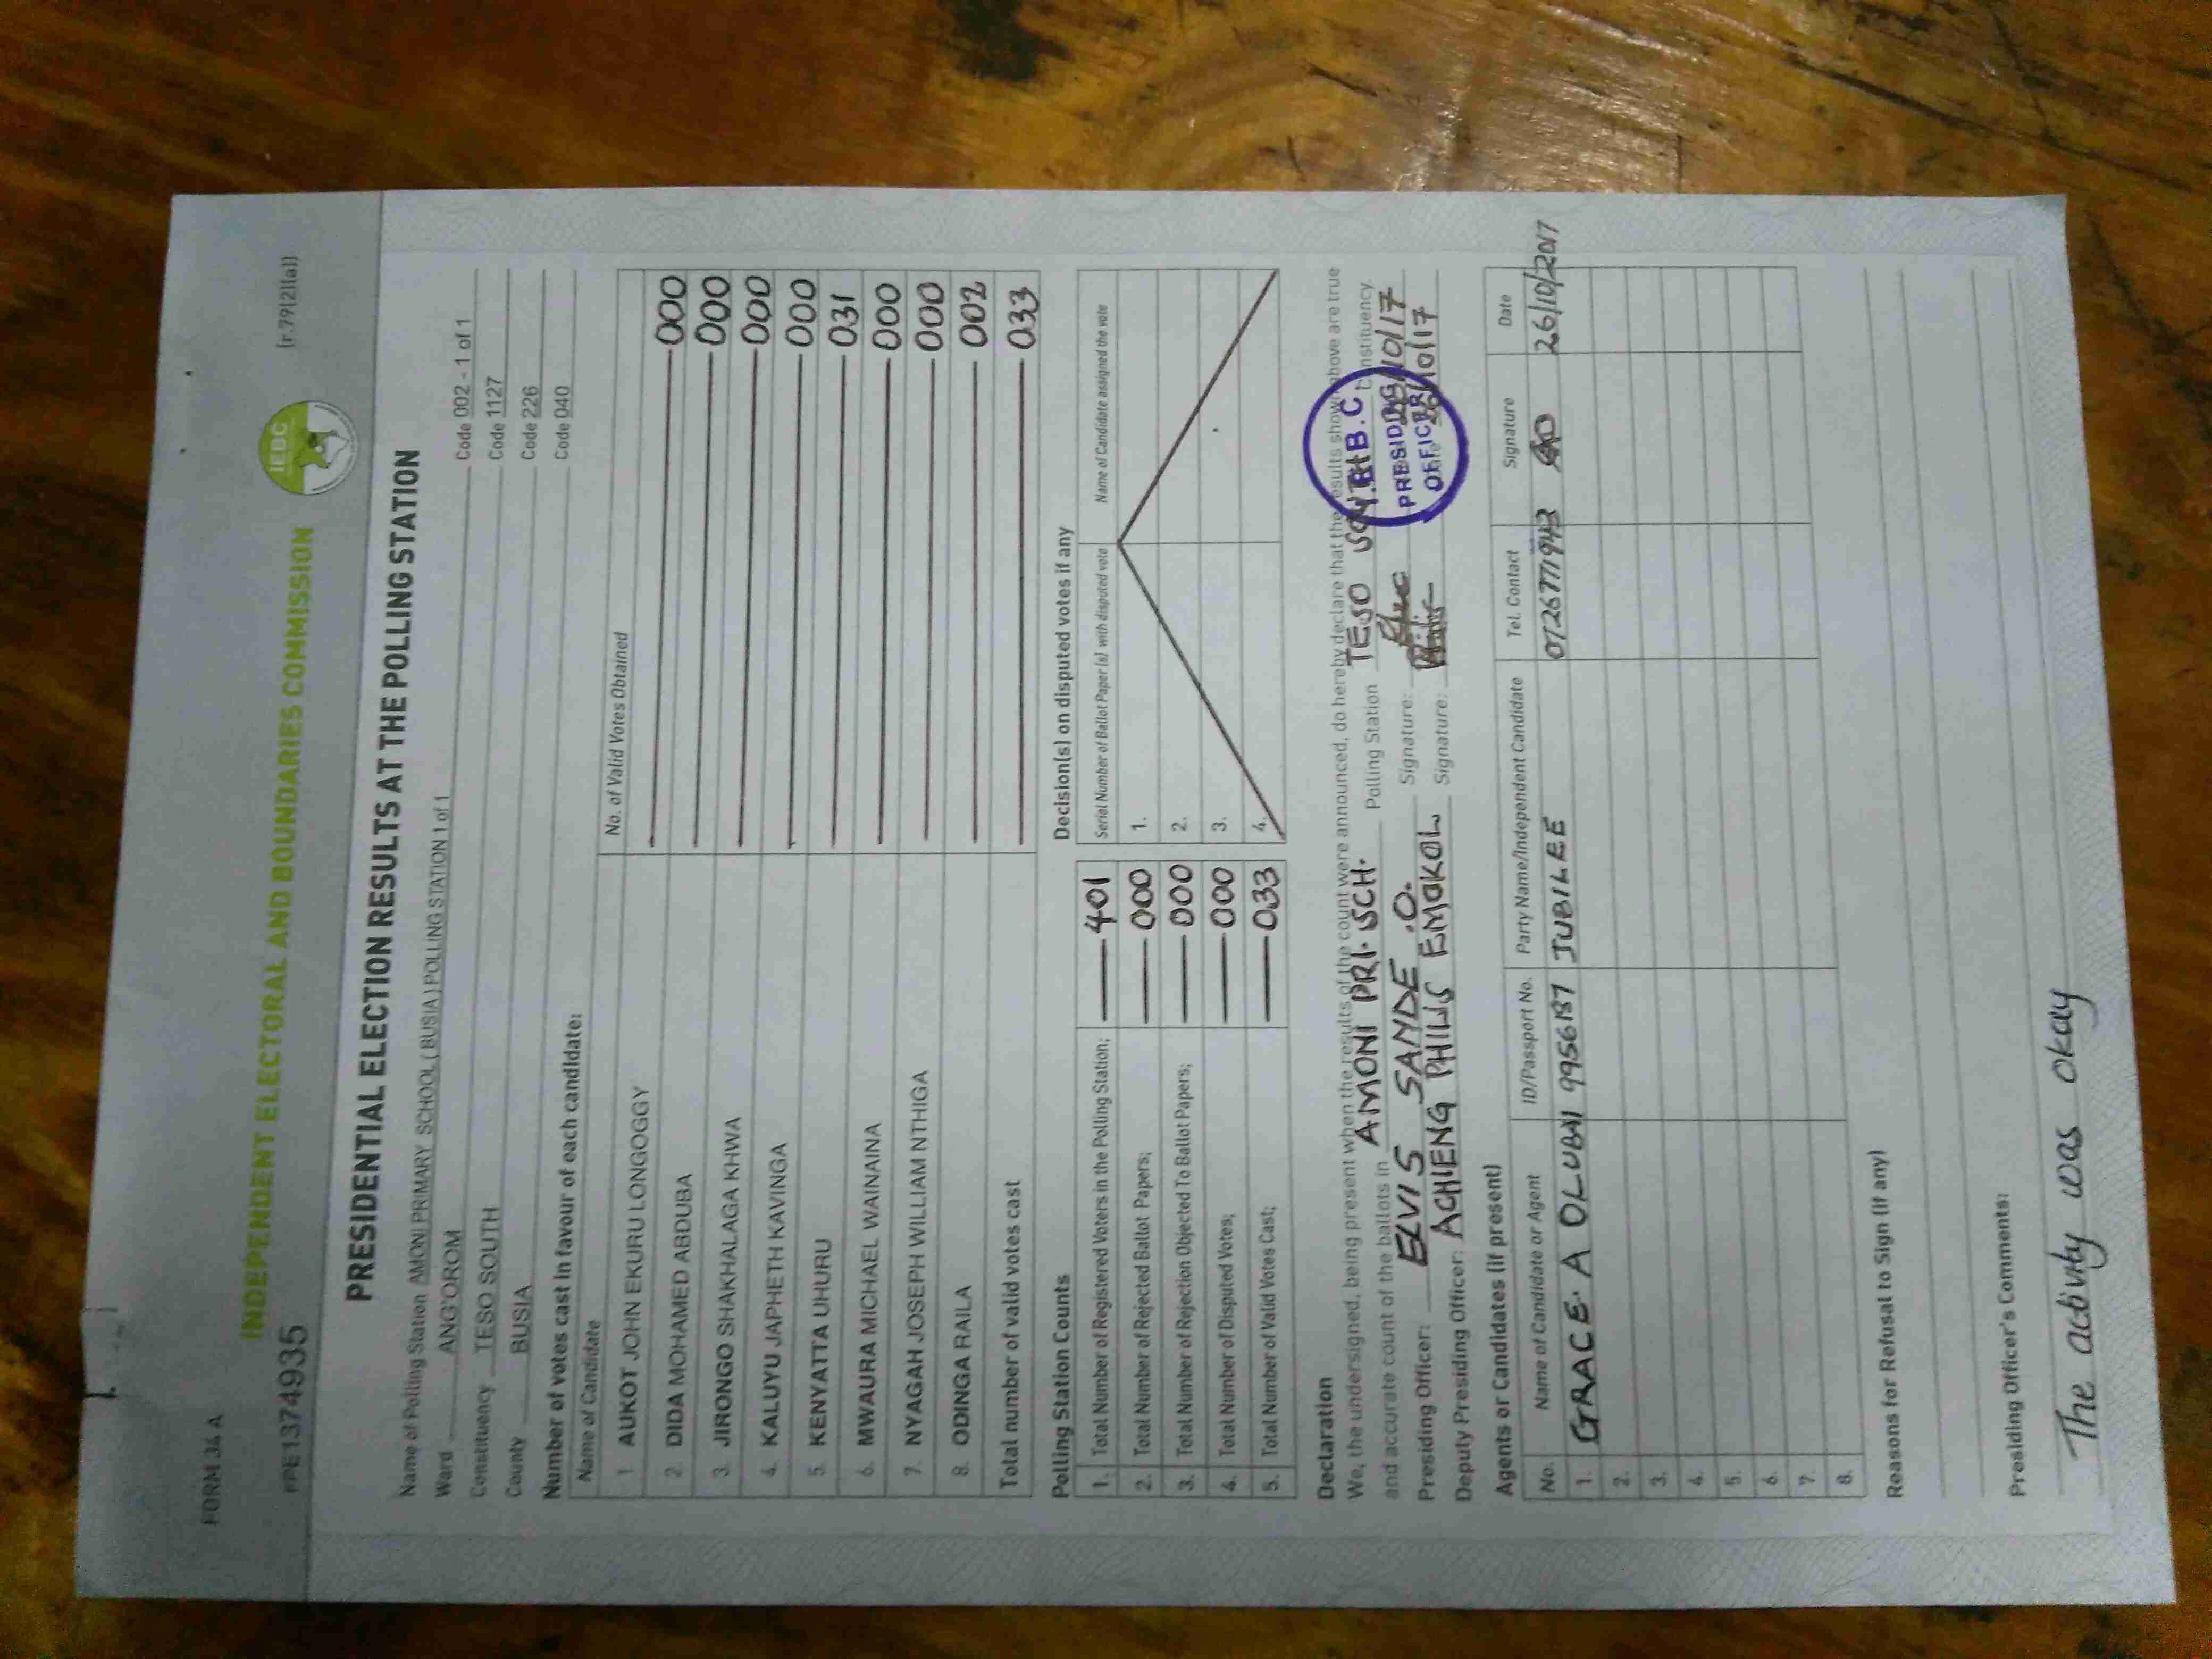 FORM 34 A
INDEPENDENT ELECTORAL AND BOUNDARIES COMMISSION
IEBC
(r.79(2)(a))
PRESIDENTIAL ELECTION RESULTS AT THE POLLING STATION
Name of Polling Station AMONI PRIMARY SCHOOL (BUSIA) POLLING STATION 1 of 1 Code 002 - 1 of 1
Ward ANG'OROM Code 1127
Constituency TESO SOUTH Code 226
County BUSIA Code 040
Number of votes cast in favour of each candidate:
Name of Candidate No. of Valid Votes Obtained
1 AUKOT JOHN EKURU LONGOGGY 000
2. DIDA MOHAMED ABDUBA 000
3. JIRONGO SHAKHALAGA KHWA 000
4. KALUYU JAPHETH KAVINGA 000
5. KENYATTA UHURU 031
6. MWAURA MICHAEL WAINAINA 000
7. NYAGAH JOSEPH WILLIAM NTHIGA 000
8. ODINGA RAILA 002
Total number of valid votes cast 033
Polling Station Counts
1. Total Number of Registered Voters in the Polling Station; 401
2. Total Number of Rejected Ballot Papers; 000
3. Total Number of Rejection Objected To Ballot Papers; 000
4. Total Number of Disputed Votes; 000
5. Total Number of Valid Votes Cast; 033
Decision(s) on disputed votes if any
Serial Number of Ballot Paper (s) with disputed vote Name of Candidate assigned the vote
1.
2.
3.
4.
Declaration
We, the undersigned, being present when the results of the count were announced, do hereby declare that the results shown above are true
and accurate count of the ballots in AMONI PRI. SCH. Polling Station TESO SOUTH Constituency.
Presiding Officer: ELVIS SANDE .O. Signature: 26/10/17
Deputy Presiding Officer: ACHIENG PHILIS EMOKOL Signature: 26/10/17
I.E.B.C
PRESIDING
OFFICER
Agents or Candidates (if present)
No. Name of Candidate or Agent ID/Passport No. Party Name/Independent Candidate Tel. Contact Signature Date
1. GRACE. A OLUBAI 9956187 JUBILEE 0726771943 26/10/2017
2.
3.
4.
5.
6.
7.
8.
Reasons for Refusal to Sign (if any)
Presiding Officer's Comments:
The activity was okay